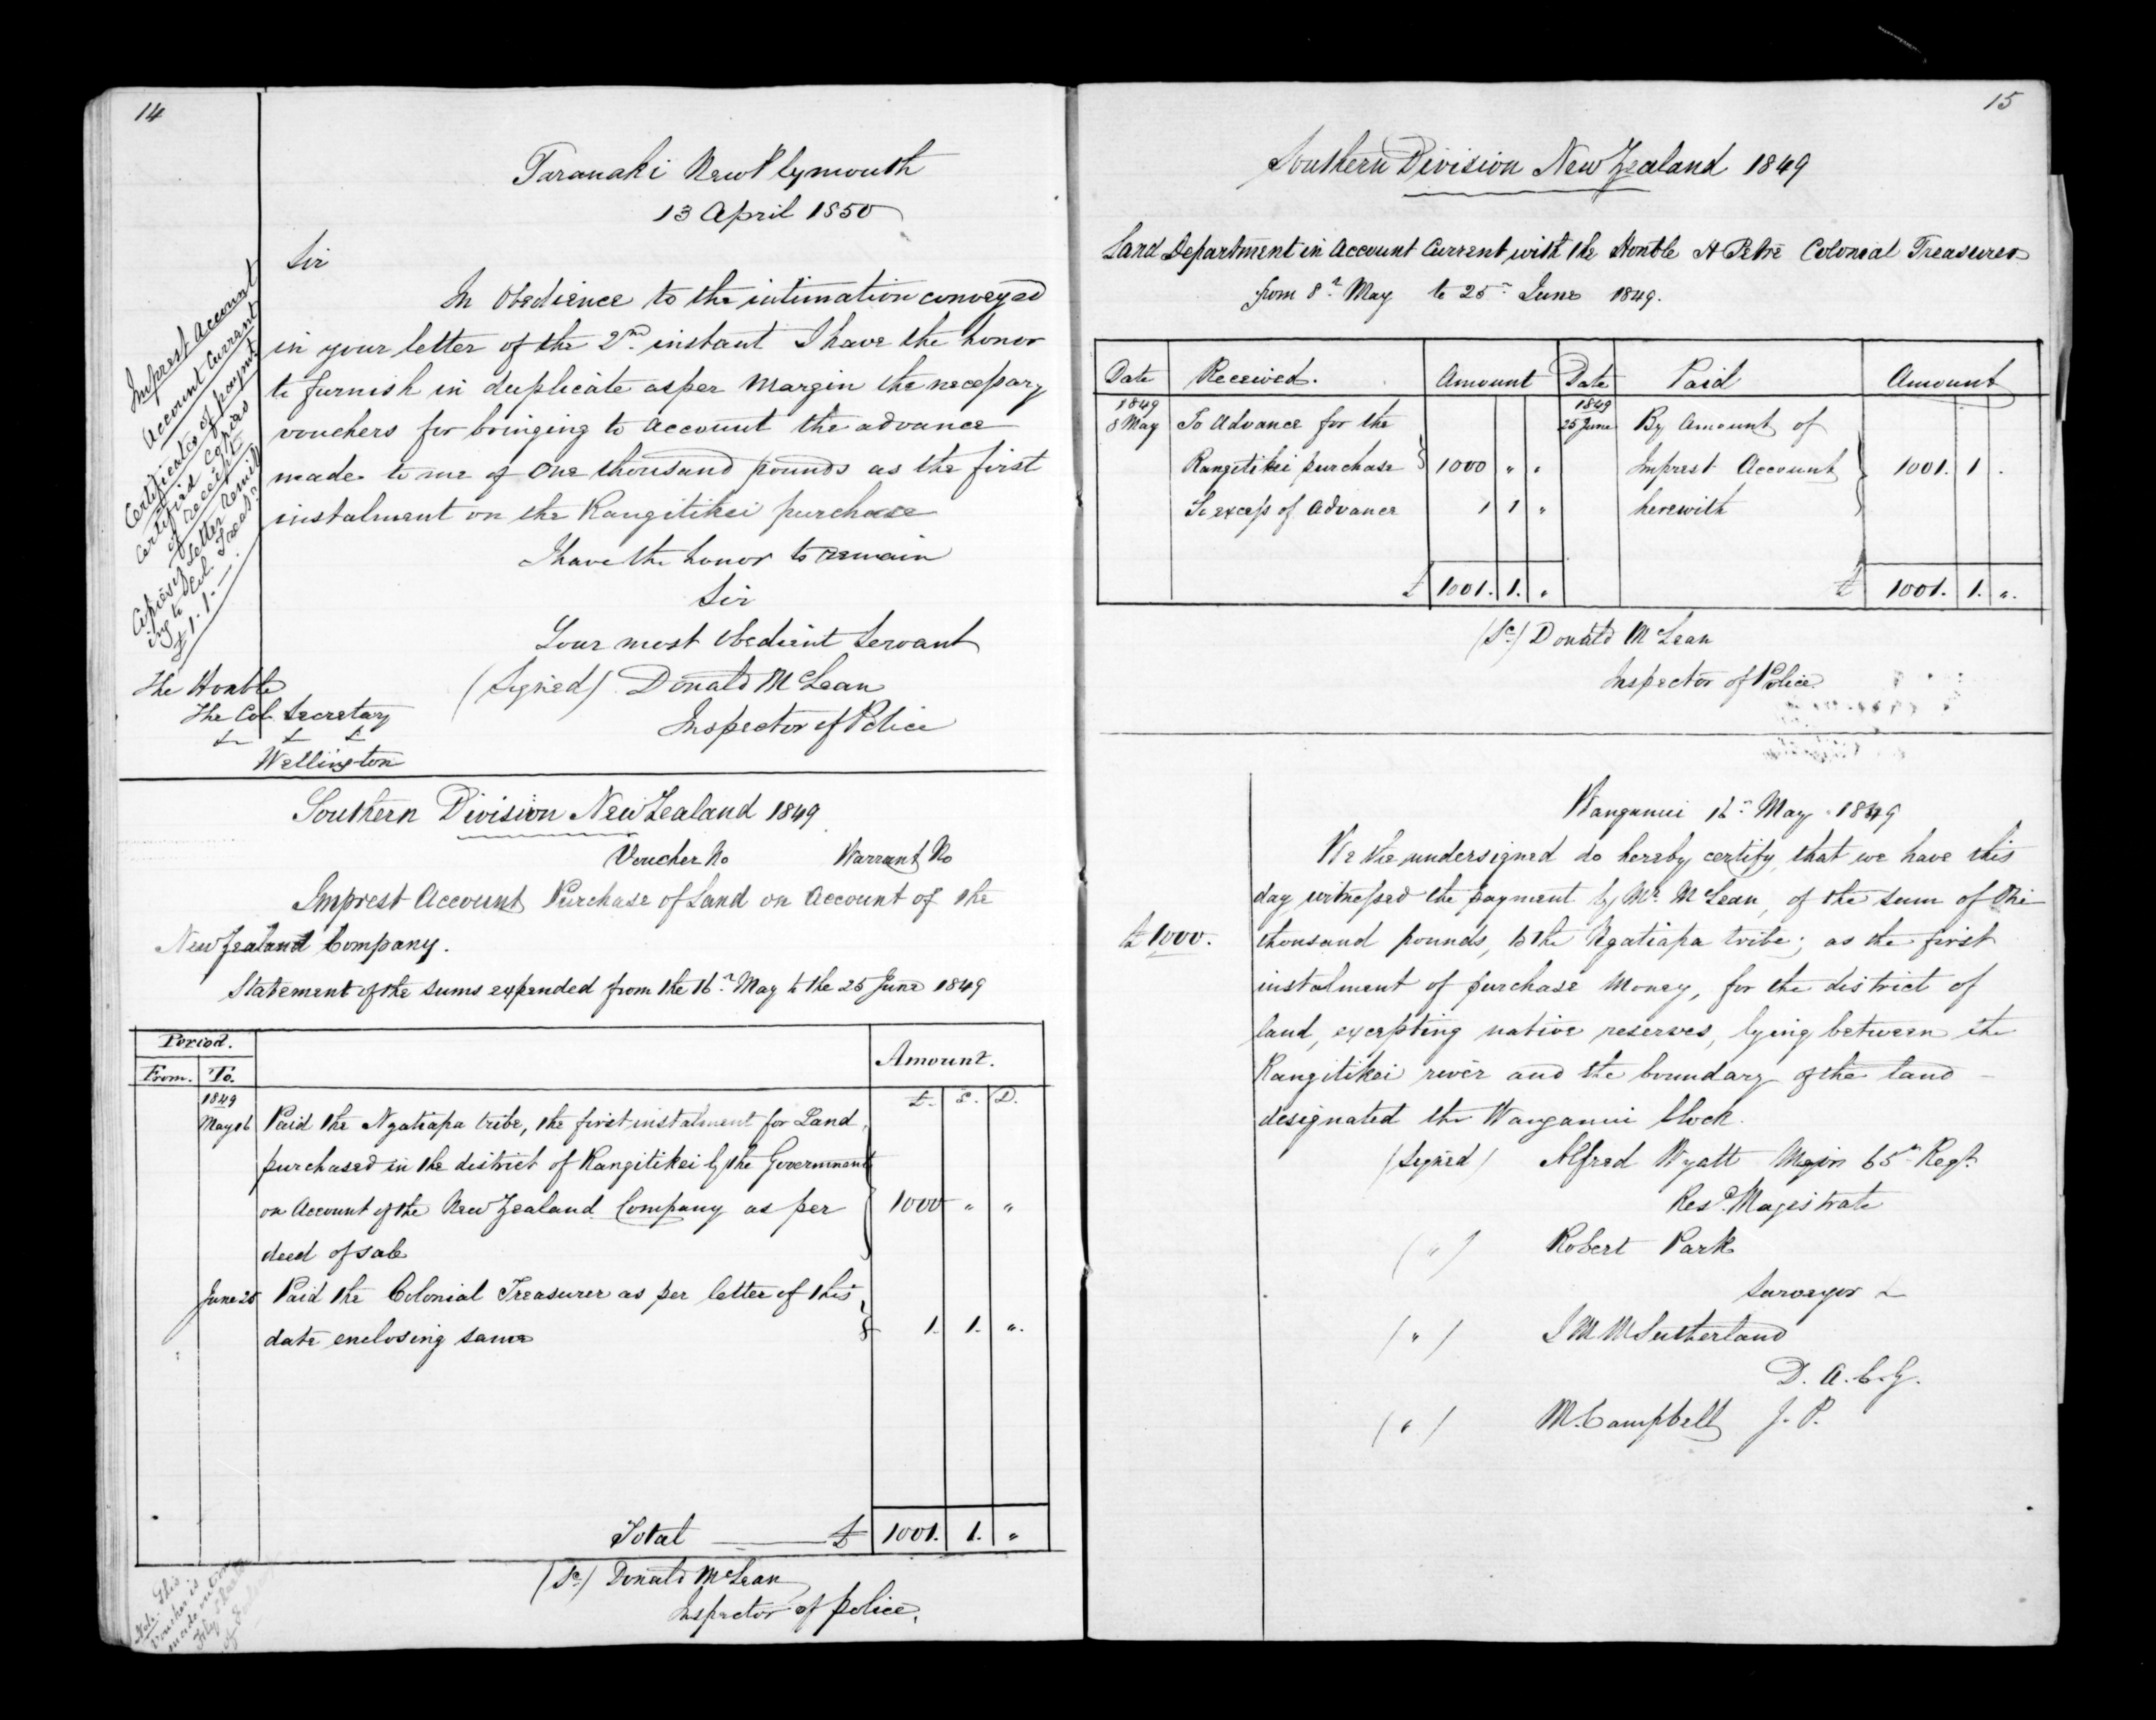 14
Taranaki New Plymouth
13 April 1850
Sir
In Obedience to the intimation conveyed
in your letter of the 2nd instant I have the honor
to furnish in duplicate as per Margin the necessary
vouchers for bringing to account the advance
made to me of One thousand pounds as the first
instalment on the Rangitikei purchase
I have the honor to remain
Sir
Your most Obedient Servant
(Signed) Donald McLean
Inspector of Police
Imprest Account
Account Current
Certificates of paymt.
Certified Copies
of receipts
Copies of Letter remitt
ing to Col. Treasr.
£1.1.—
The Honble
The Col. Secretary
Wellington
Southern Division New Zealand 1849
Voucher No Warrant No
Imprest Account Purchase of Land on Account of the
New Zealand Company.
Statement of the sums expended from the 16th May to the 25 June 1849
Period. Amount.
From. To.
1849 £. S. D.
May 16 Paid the Ngatiapa tribe, the first instalment for Land
purchased in the district of Rangitikei by the Government
on Account of the New Zealand Company as per 1000 " "
deed of sale
June 25 Paid the Colonial Treasurer as per letter of this
date enclosing same 1. 1. ".
Total £ 1001. 1. "
(Sd) Donald McLean
Inspector of police.
Note. This
Voucher is
made out
15
Southern Division New Zealand 1849
Land Department in Account Current with the Honble H Petre Colonial Treasurer
from 8th May to 25th June 1849.
Date Received. Amount Date Paid Amount
1849 1849
8 May To Advance for the 25 June By Amount of
Rangitikei purchase 1000 " " Imprest Account 1001. 1 .
To excess of Advance 1 1 " herewith
£ 1001. 1. " £ 1001. 1. ".
(Sd) Donald McLean
Inspector of Police
Wanganui 16th May 1849
We the undersigned do hereby certify, that we have this
day witnessed the payment by Mr. McLean, of the sum of One
£1000. thousand pounds, to the Ngatiapa tribe; as the first
instalment of purchase Money, for the district of
land, excepting native reserves, lying between the
Rangitikei river and the boundary of the land
designated the Wanganui block.
(Signed) Alfred Wyatt Major 65th Regt.
Resd. Magistrate
(") Robert Park
Surveyor
(") Sutherland
D. A. C. G.
(") M. Campbell J. P.